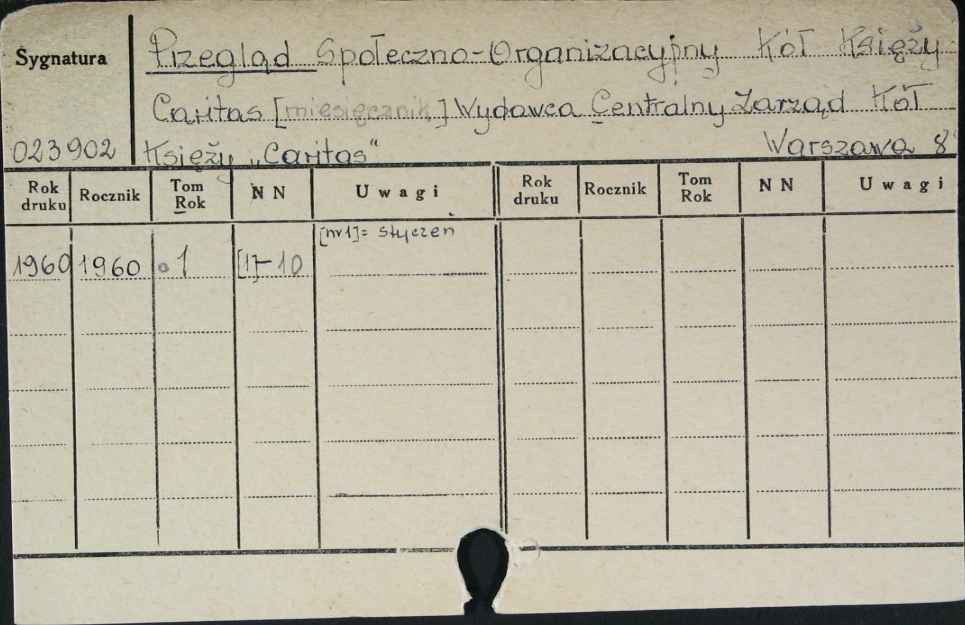 Sygnatura
Przegląd Społeczno-Organizacyjny Kół Księży
Caritas [miesięcznik] Wydawca Centralny Zarząd Kół
023902 Księży „Caritas" Warszawa 8
Rok druku Rocznik Tom Rok NN Uwagi Rok druku Rocznik Tom Rok NN Uwagi
[nr1]= styczeń
1960 1960 1 [1]-10